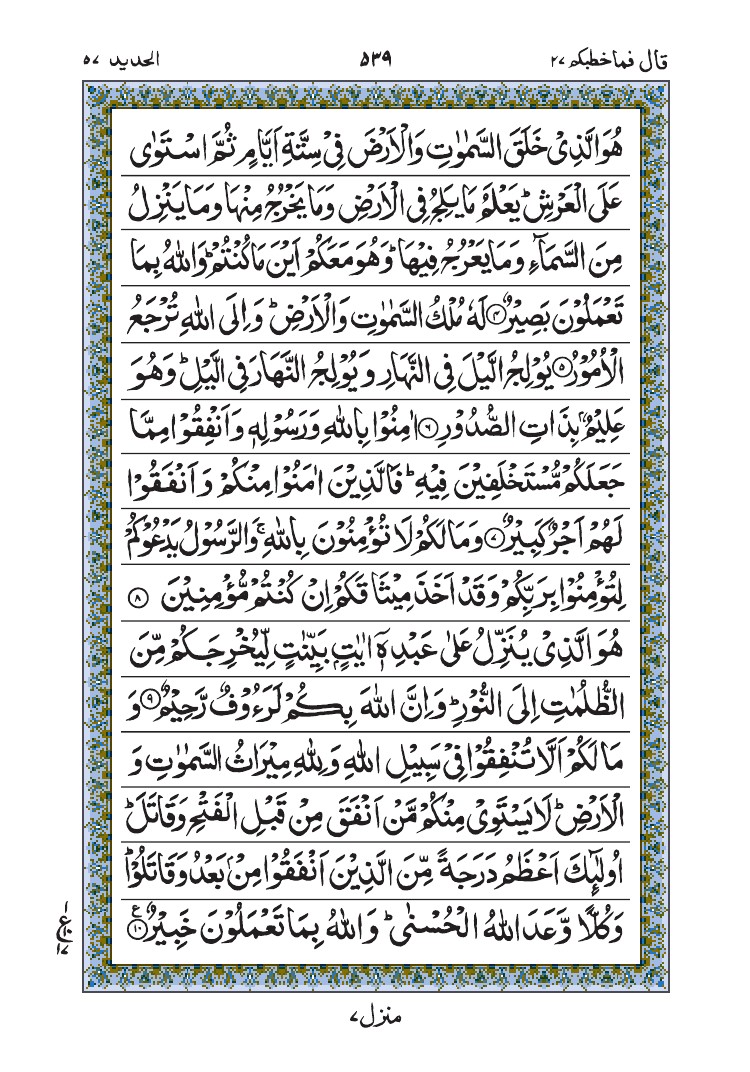 قال فماخطبکم ۲۷ ۵۳۹ الحدید ۵۷
هُوَ الَّذِیْ خَلَقَ السَّمٰوٰتِ وَالْاَرْضَ فِیْ سِتَّةِ اَیَّامٍ ثُمَّ اسْتَوٰی
عَلَی الْعَرْشِ ؕ یَعْلَمُ مَا یَلِجُ فِی الْاَرْضِ وَمَا یَخْرُجُ مِنْهَا وَمَا یَنْزِلُ
مِنَ السَّمَآءِ وَمَا یَعْرُجُ فِیْهَا ؕ وَهُوَ مَعَکُمْ اَیْنَ مَا کُنْتُمْ ؕ وَاللّٰهُ بِمَا
تَعْمَلُوْنَ بَصِیْرٌ ۝۴ لَهٗ مُلْکُ السَّمٰوٰتِ وَالْاَرْضِ ؕ وَاِلَی اللّٰهِ تُرْجَعُ
الْاُمُوْرُ ۝۵ یُوْلِجُ الَّیْلَ فِی النَّهَارِ وَیُوْلِجُ النَّهَارَ فِی الَّیْلِ ؕ وَهُوَ
عَلِیْمٌۢ بِذَاتِ الصُّدُوْرِ ۝۶ اٰمِنُوْا بِاللّٰهِ وَرَسُوْلِهٖ وَاَنْفِقُوْا مِمَّا
جَعَلَکُمْ مُّسْتَخْلَفِیْنَ فِیْهِ ؕ فَالَّذِیْنَ اٰمَنُوْا مِنْکُمْ وَاَنْفَقُوْا
لَهُمْ اَجْرٌ کَبِیْرٌ ۝۷ وَمَا لَکُمْ لَا تُؤْمِنُوْنَ بِاللّٰهِ ۚ وَالرَّسُوْلُ یَدْعُوْکُمْ
لِتُؤْمِنُوْا بِرَبِّکُمْ وَقَدْ اَخَذَ مِیْثَاقَکُمْ اِنْ کُنْتُمْ مُّؤْمِنِیْنَ ۝۸
هُوَ الَّذِیْ یُنَزِّلُ عَلٰی عَبْدِهٖۤ اٰیٰتٍۭ بَیِّنٰتٍ لِّیُخْرِجَکُمْ مِّنَ
الظُّلُمٰتِ اِلَی النُّوْرِ ؕ وَاِنَّ اللّٰهَ بِکُمْ لَرَءُوْفٌ رَّحِیْمٌ ۝۹ وَ
مَا لَکُمْ اَلَّا تُنْفِقُوْا فِیْ سَبِیْلِ اللّٰهِ وَلِلّٰهِ مِیْرَاثُ السَّمٰوٰتِ وَ
الْاَرْضِ ؕ لَا یَسْتَوِیْ مِنْکُمْ مَّنْ اَنْفَقَ مِنْ قَبْلِ الْفَتْحِ وَقَاتَلَ ؕ
اُولٰٓئِكَ اَعْظَمُ دَرَجَةً مِّنَ الَّذِیْنَ اَنْفَقُوْا مِنْۢ بَعْدُ وَقَاتَلُوْا ؕ
وَکُلًّا وَّعَدَ اللّٰهُ الْحُسْنٰی ؕ وَاللّٰهُ بِمَا تَعْمَلُوْنَ خَبِیْرٌ ۝۱۰ ع
۱
ع۱۰
۱۷
منزل ۷